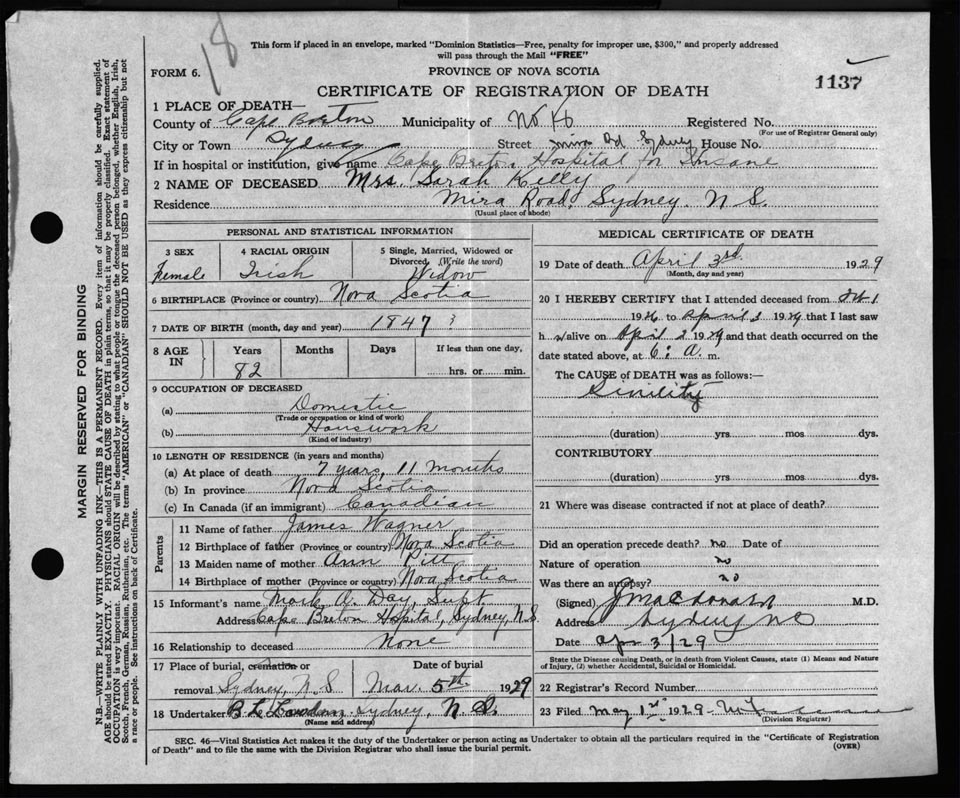 18
This form if placed in an envelope, marked "Dominion Statistics—Free, penalty for improper use, $300," and properly addressed
will pass through the Mail "FREE"
FORM 6.
PROVINCE OF NOVA SCOTIA
1137
CERTIFICATE OF REGISTRATION OF DEATH
1 PLACE OF DEATH—
County of Cape Breton Municipality of No 46 Registered No.
(For use of Registrar General only)
City or Town Sydney Street Mira Rd Sydney House No.
If in hospital or institution, give name Cape Breton Hospital for Insane
2 NAME OF DECEASED Mrs. Sarah Kelly
Residence Mira Road, Sydney. N S.
(Usual place of abode)
PERSONAL AND STATISTICAL INFORMATION
3 SEX 4 RACIAL ORIGIN 5 Single, Married, Widowed or
Divorced (Write the word)
Female Irish Widow
6 BIRTHPLACE (Province or country) Nova Scotia
7 DATE OF BIRTH (month, day and year) 1847 ?
8 AGE IN Years Months Days If less than one day,
82 hrs. or min.
9 OCCUPATION OF DECEASED
(a) Domestic
(Trade or occupation or kind of work)
(b) Houswork
(Kind of industry)
10 LENGTH OF RESIDENCE (in years and months)
(a) At place of death 7 years, 11 months
(b) In province Nova Scotia
(c) In Canada (if an immigrant) Canadian
Parents
11 Name of father James Wagner
12 Birthplace of father (Province or country) Nova Scotia
13 Maiden name of mother Ann
14 Birthplace of mother (Province or country) Nova Scotia
15 Informant's name Mark A. Day, Supt
Address Cape Breton Hospital, Sydney, N.S.
16 Relationship to deceased None
17 Place of burial, cremation or Date of burial
removal Sydney, N.S Mar. 5th 1929
18 Undertaker Sydney, N.S.
(Name and address)
MEDICAL CERTIFICATE OF DEATH
19 Date of death April 3rd 1929
(Month, day and year)
20 I HEREBY CERTIFY that I attended deceased from
1926 to April 3 1929 that I last saw
h alive on April 2 1929 and that death occurred on the
date stated above, at 6: A. m.
The CAUSE of DEATH was as follows:—
Sinility
(duration) yrs mos dys.
CONTRIBUTORY
(duration) yrs. mos. dys.
21 Where was disease contracted if not at place of death?
Did an operation precede death? no Date of
Nature of operation no
Was there an autopsy? no
(Signed) J Macdonald M.D.
Address Sydney NS
Date Apr 3/29
State the Disease causing Death, or in death from Violent Causes, state (1) Means and Nature
of Injury, (2) whether Accidental, Suicidal or Homicidal.
22 Registrar's Record Number
23 Filed May 1st 1929
(Division Registrar)
SEC. 46—Vital Statistics Act makes it the duty of the Undertaker or person acting as Undertaker to obtain all the particulars required in the "Certificate of Registration
of Death" and to file the same with the Division Registrar who shall issue the burial permit.
(OVER)
MARGIN RESERVED FOR BINDING
N.B.—WRITE PLAINLY WITH UNFADING INK—THIS IS A PERMANENT RECORD. Every item of information should be carefully supplied.
AGE should be stated EXACTLY. PHYSICIANS should STATE CAUSE OF DEATH in plain terms, so that it may be properly classified. Exact statement of
OCCUPATION is very important. RACIAL ORIGIN will be described by stating to what people or tongue the deceased person belonged, whether English, Irish,
Scotch, French, German, Russian, Ruthenian, etc. The terms "AMERICAN" or "CANADIAN" SHOULD NOT BE USED as they express citizenship but not
a race or people. See instructions on back of Certificate.